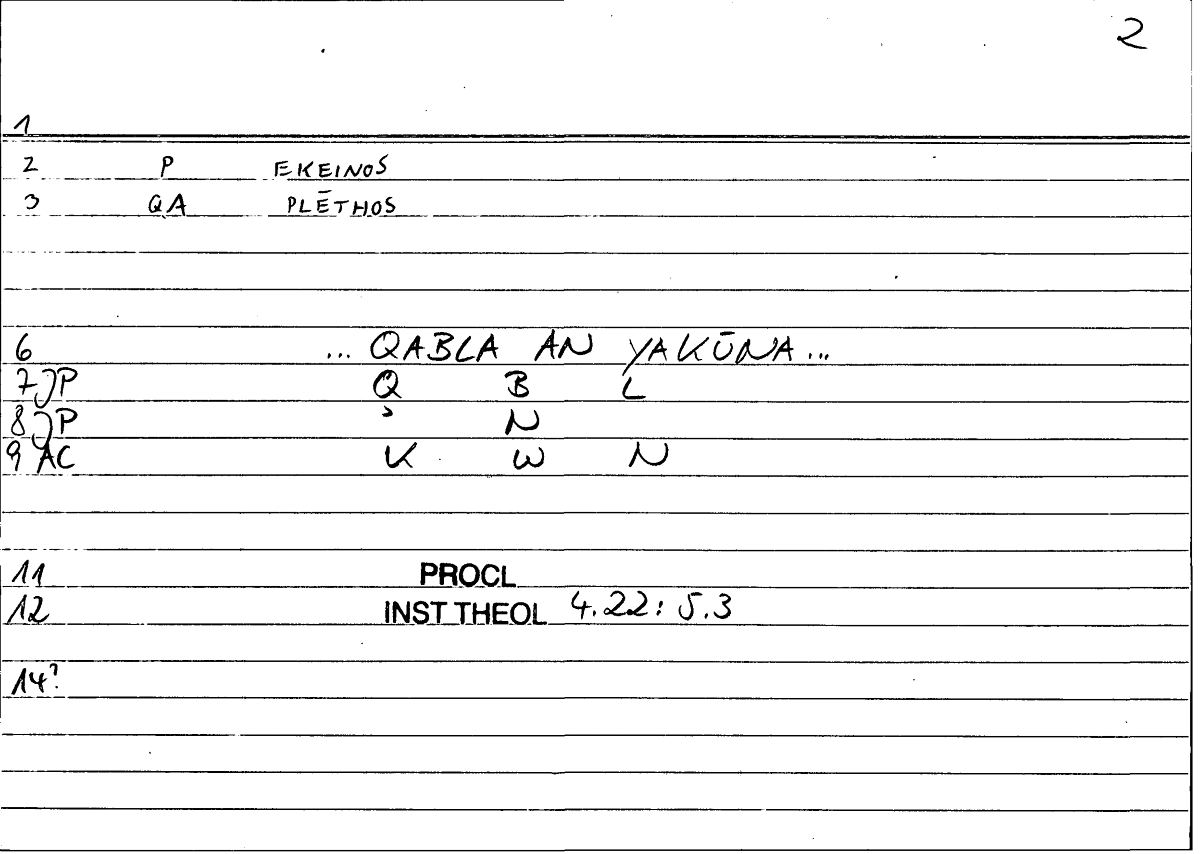 2
1
2 P EKEINOS
3 QA PLĒTHOS
6 ... QABLA AN YAKŪNA ...
7 JP Q B L
8 JP ʾ N
9 AC K W N
11 PROCL
12 INST THEOL 4.22: 5.3
14?